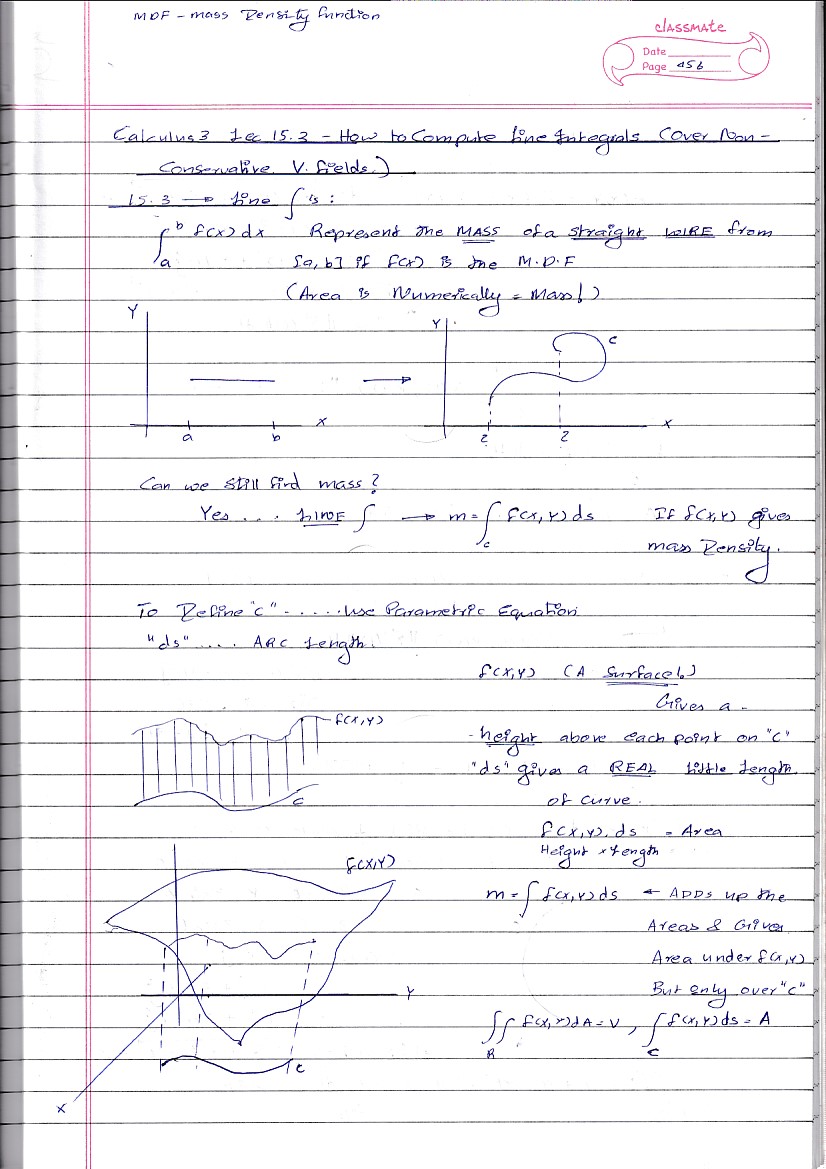 MDF - mass Density function
classmate
Date
Page 156
Calculus 3 Lec 15.3 - How to Compute Line Integrals (Over Non-
Conservative V. fields.)
15.3 → Line ∫ is:
∫_a^b f(x) dx Represent the MASS of a straight WIRE from
[a, b] if f(x) is the M.D.F
(Area is Numerically = Mass!)
Y
Y
C
a b X
2 2 X
Can we still find mass?
Yes ... LINE ∫ → m = ∫_c f(x,y) ds If f(x,y) gives
mass Density.
To Define "C" ..... use Parametric Equation
"ds" .... ARC Length.
f(x,y) (A Surface!)
Gives a -
f(x,y)
- height above each point on "C"
"ds" gives a REAL little Length
C
of curve.
f(x,y). ds = Area
Height × Length
f(x,y)
m = ∫ f(x,y) ds ← ADDs up the
Areas & Gives
Area under f(x,y)
But only over "C"
Y
∫∫_R f(x,y) dA = V, ∫_C f(x,y) ds = A
C
X